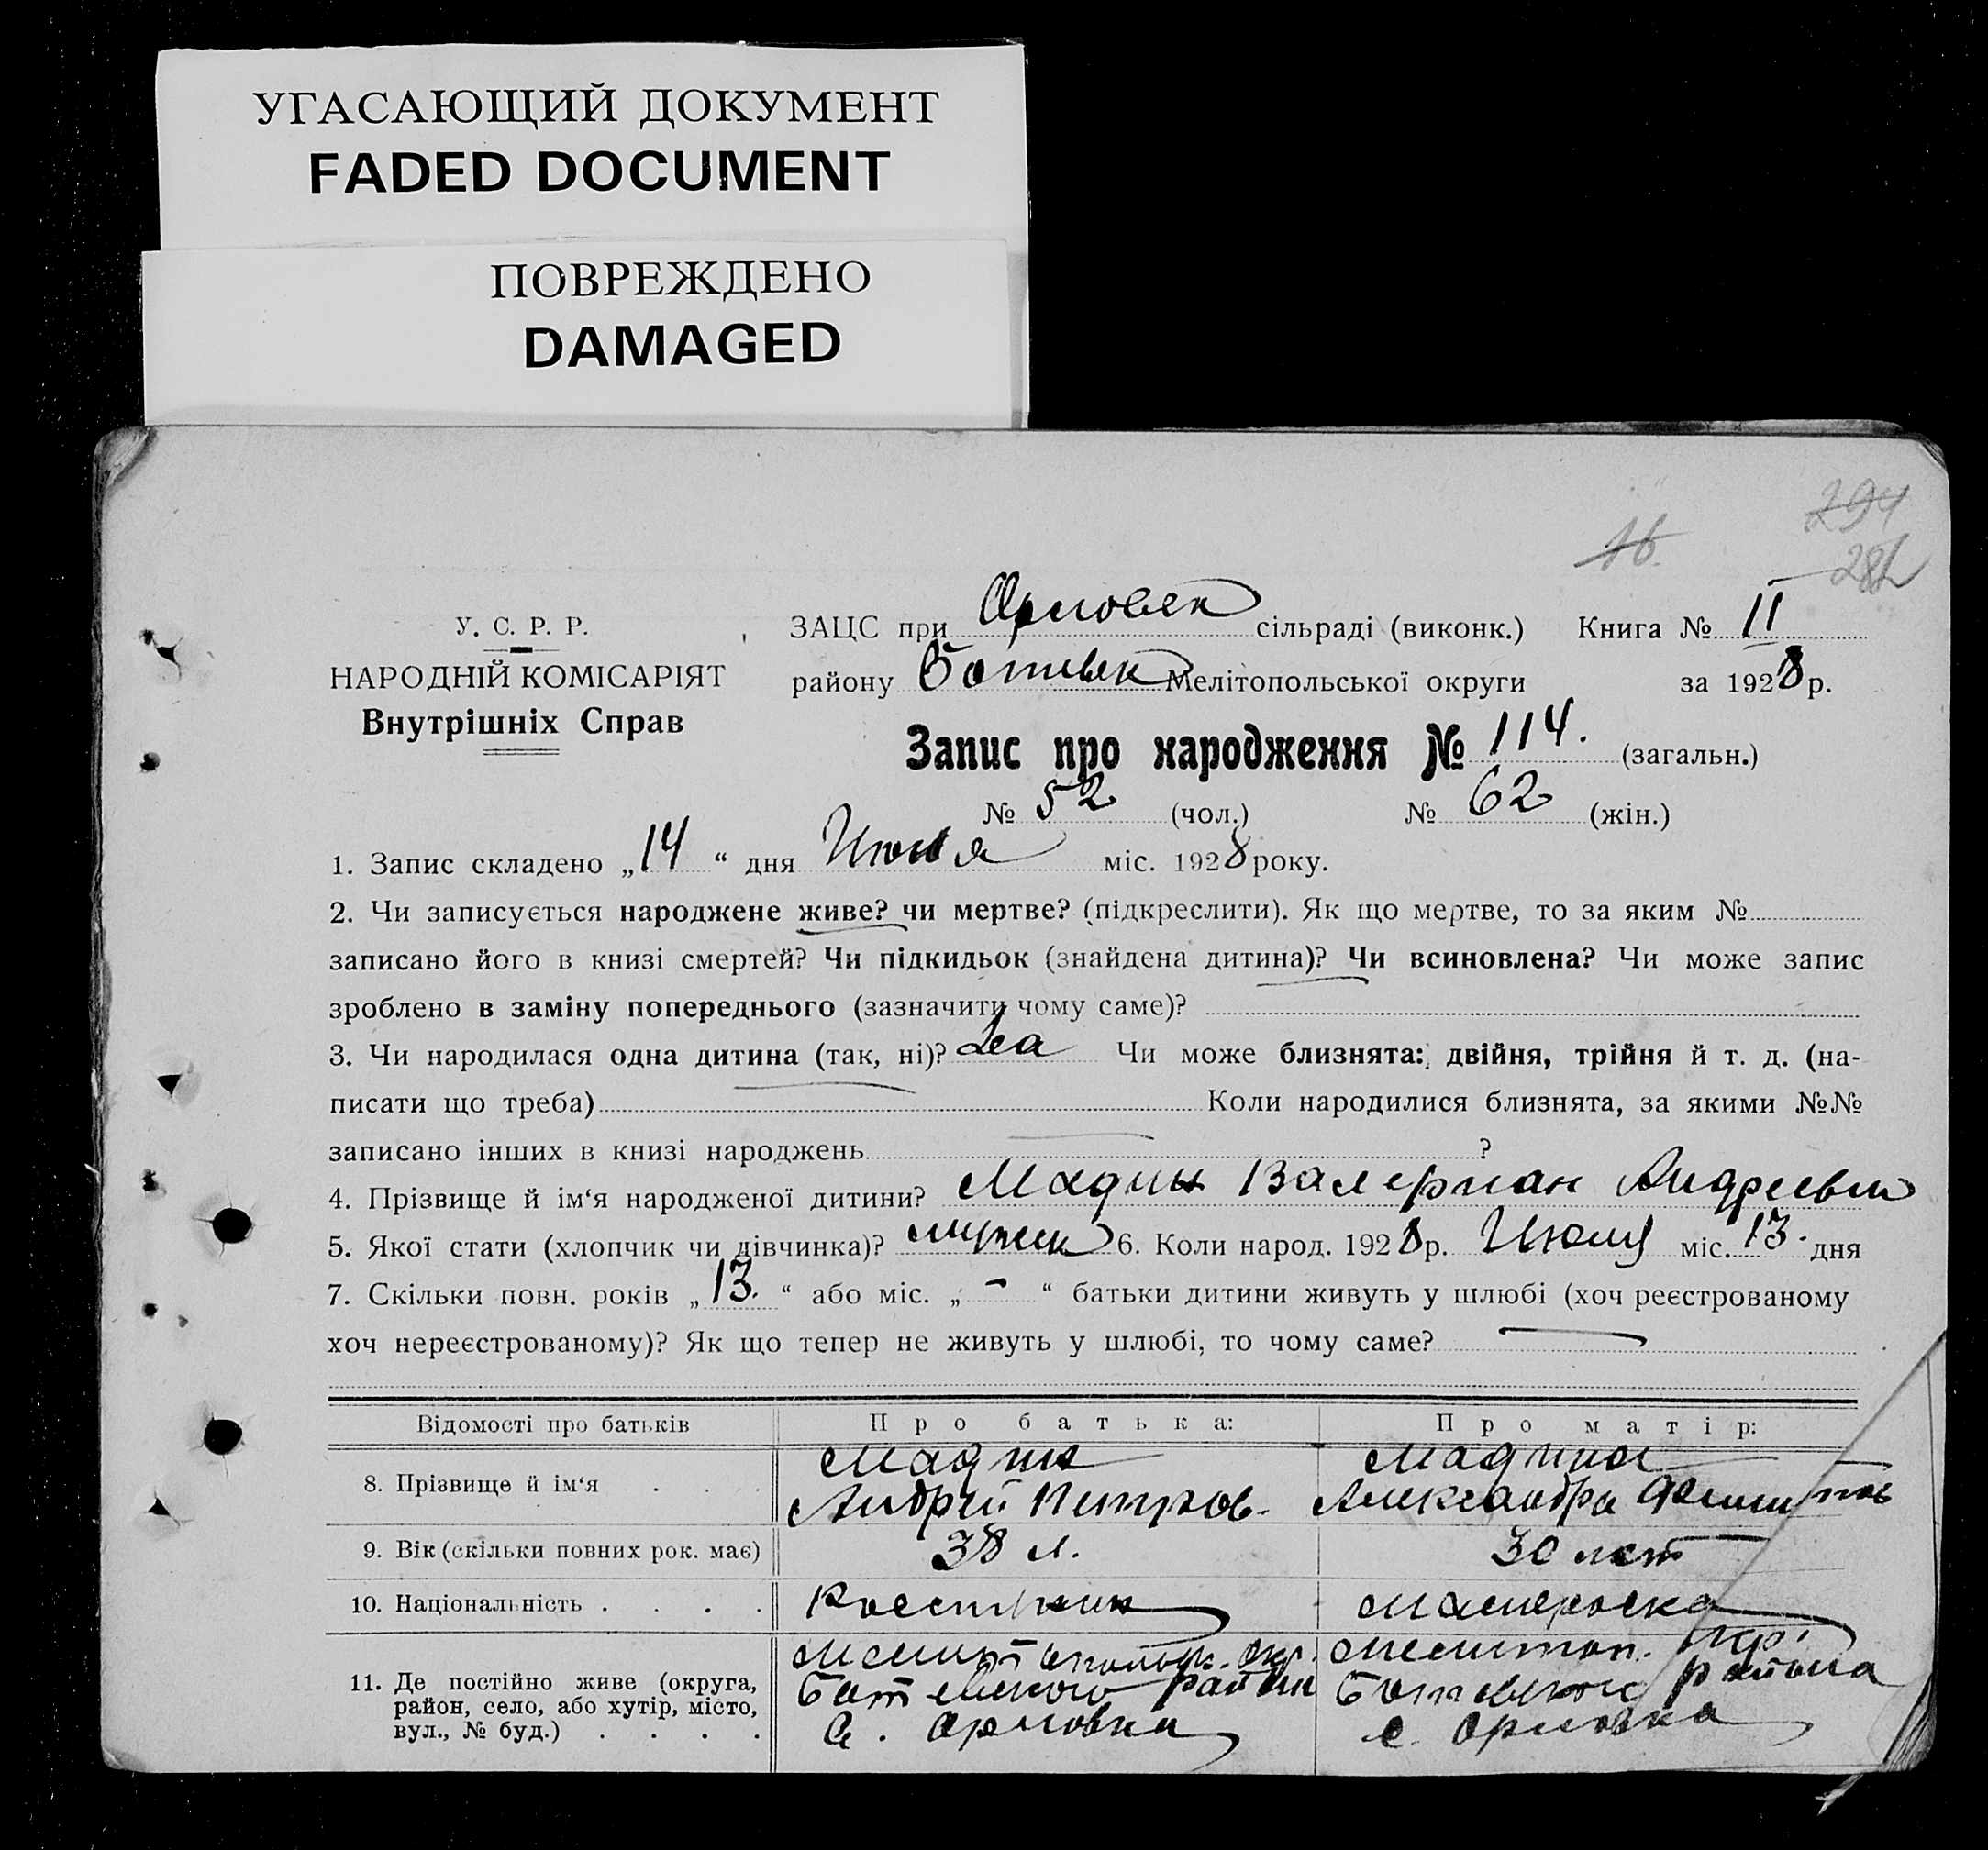 УГАСАЮЩИЙ ДОКУМЕНТ
FADED DOCUMENT
ПОВРЕЖДЕНО
DAMAGED
294
16.
286
У. С. Р. Р.
НАРОДНІЙ КОМІСАРІЯТ
Внутрішніх Справ
ЗАЦС при Орловск сільраді (виконк.) Книга № II
району Ботиевск Мелітопольської округи за 1928 р.
Запис про народження № 114. (загальн.)
№ 52 (чол.) № 62 (жін.)
1. Запис складено „14“ дня міс. 1928 року.
2. Чи записується народжене живе? чи мертве? (підкреслити). Як що мертве, то за яким №
записано його в книзі смертей? Чи підкидьок (знайдена дитина)? Чи всиновлена? Чи може запис
зроблено в заміну попереднього (зазначити чому саме)?
3. Чи народилася одна дитина (так, ні)? Чи може близнята: двійня, трійня й т. д. (на-
писати що треба) Коли народилися близнята, за якими №№
записано інших в книзі народжень ?
4. Прізвище й ім‘я народженої дитини? Мадин Валериан Андреевич
5. Якої стати (хлопчик чи дівчинка)? мужск 6. Коли народ. 1928 р. Июля міс. 13. дня
7. Скільки повн. років „13.“ або міс. „-“ батьки дитини живуть у шлюбі (хоч реєстрованому
хоч нереєстрованому)? Як що тепер не живуть у шлюбі, то чому саме?
Відомості про батьків Про батька: Про матір:
8. Прізвище й ім‘я . . .
Мадин
Андрей Петров.
Мадина
Александра
9. Вік (скільки повних рок. має) 38 л. 30 лет
10. Національність . . . .
11. Де постійно живе (округа,
район, село, або хутір, місто,
вул., № буд.) . . . .
Мелитопольск. окр.
Ботиевского района
с. Орловка
Мелитоп. окр.
Ботиевского района
с. Орловка